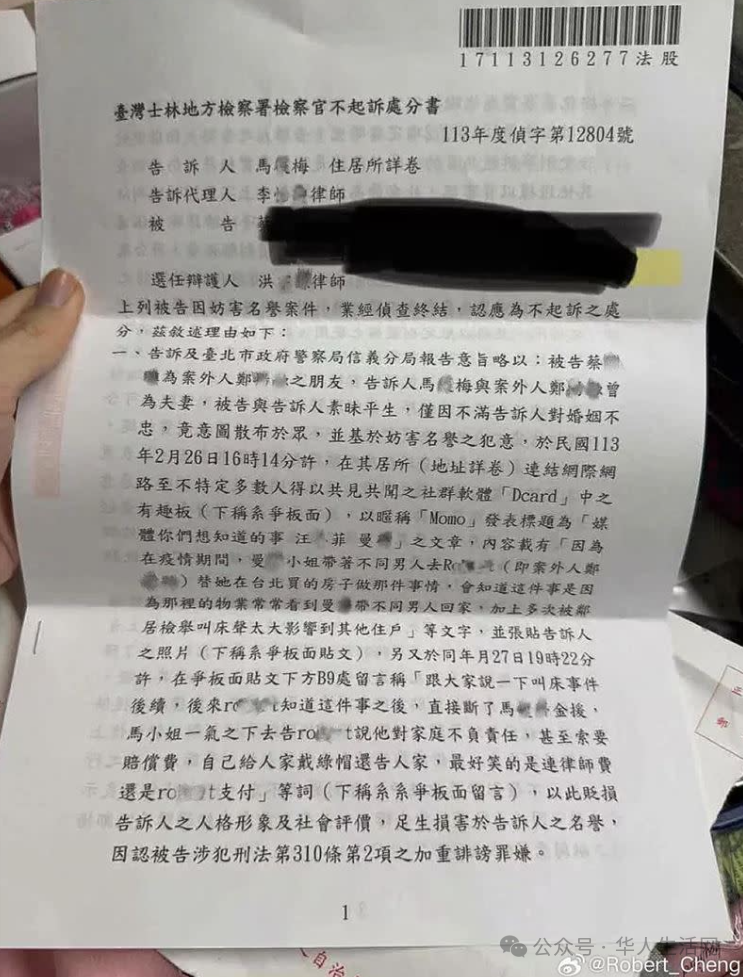 17113126277法股
臺灣士林地方檢察署檢察官不起訴處分書
113年度偵字第12804號
告訴人 馬 梅 住居所詳卷
告訴代理人 李 律師
被告
選任辯護人 洪 律師
上列被告因妨害名譽案件,業經偵查終結,認應為不起訴之處
分,茲敘述理由如下:
一、告訴及臺北市政府警察局信義分局報告意旨略以:被告蔡
為案外人鄭 之朋友,告訴人馬 梅與案外人鄭 曾
為夫妻,被告與告訴人素昧平生,僅因不滿告訴人對婚姻不
忠,竟意圖散布於眾,並基於妨害名譽之犯意,於民國113
年2月26日16時14分許,在其居所(地址詳卷)連結網際網
路至不特定多數人得以共見共聞之社群軟體「Dcard」中之
有趣板(下稱系爭板面),以暱稱「Momo」發表標題為「媒
體你們想知道的事 汪 菲 曼 」之文章,內容載有「因為
在疫情期間,曼 小姐帶著不同男人去Ro (即案外人鄭
)替她在台北買的房子做那件事情,會知道這件事是因
為那裡的物業常常看到曼 帶不同男人回家,加上多次被鄰
居檢舉叫床聲太大影響到其他住戶」等文字,並張貼告訴人
之照片(下稱系爭板面貼文),另又於同年月27日19時22分
許,在爭板面貼文下方B9處留言稱「跟大家說一下叫床事件
後續,後來ro t知道這件事之後,直接斷了馬 金援,
馬小姐一氣之下去告ro t說他對家庭不負責任,甚至索要
賠償費,自己給人家戴綠帽還告人家,最好笑的是連律師費
還是ro t支付」等詞(下稱系系爭板面留言),以此貶損
告訴人之人格形象及社會評價,足生損害於告訴人之名譽,
因認被告涉犯刑法第310條第2項之加重誹謗罪嫌。
1
公众号·华人生活网
@Robert_Cheng